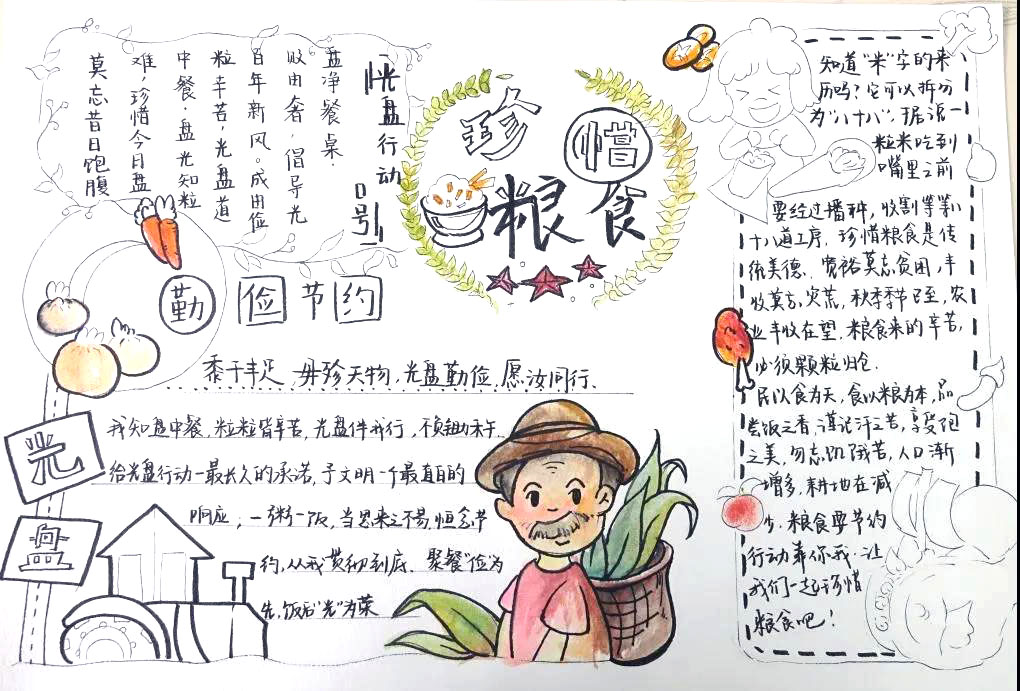 光盘行动
口号
莫忘昔日饱腹
难,珍惜今日盘
中餐,盘光知粒
粒辛苦,光盘道
百年新风。成由俭
收由奢,倡导光
盘净餐桌.
珍惜
粮食
勤俭节约
黍于丰足 毋珍天物,光盘勤俭 愿汝同行、
光盘
我知盘中餐,粒粒皆辛苦,光盘伴我行,不负锄禾午.
给光盘行动一最长久的承诺,予文明一个最直白的
响应;一粥一饭,当思来之不易,恒念节
约,从我贯彻到底、聚餐"俭"为
先,饭后"光"为荣
知道"米"字的来
历吗?它可以拆分
为"八十八".据说一
粒米吃到
嘴里之前
要经过播种,收割等等八
十八道工序.珍惜粮食是传
统美德、宽裕莫忘贫困,丰
收莫忘灾荒,秋季季节已至,农
业丰收在望.粮食来的辛苦,
必须颗粒归仓.
民以食为天,食以粮为本,品
尝饭之香,谨记汗之苦,享受饱
之美,勿忘饥饿苦,人口渐
增多,耕地在减
少.粮食要节约
行动靠你我.让
我们一起珍惜
粮食吧!